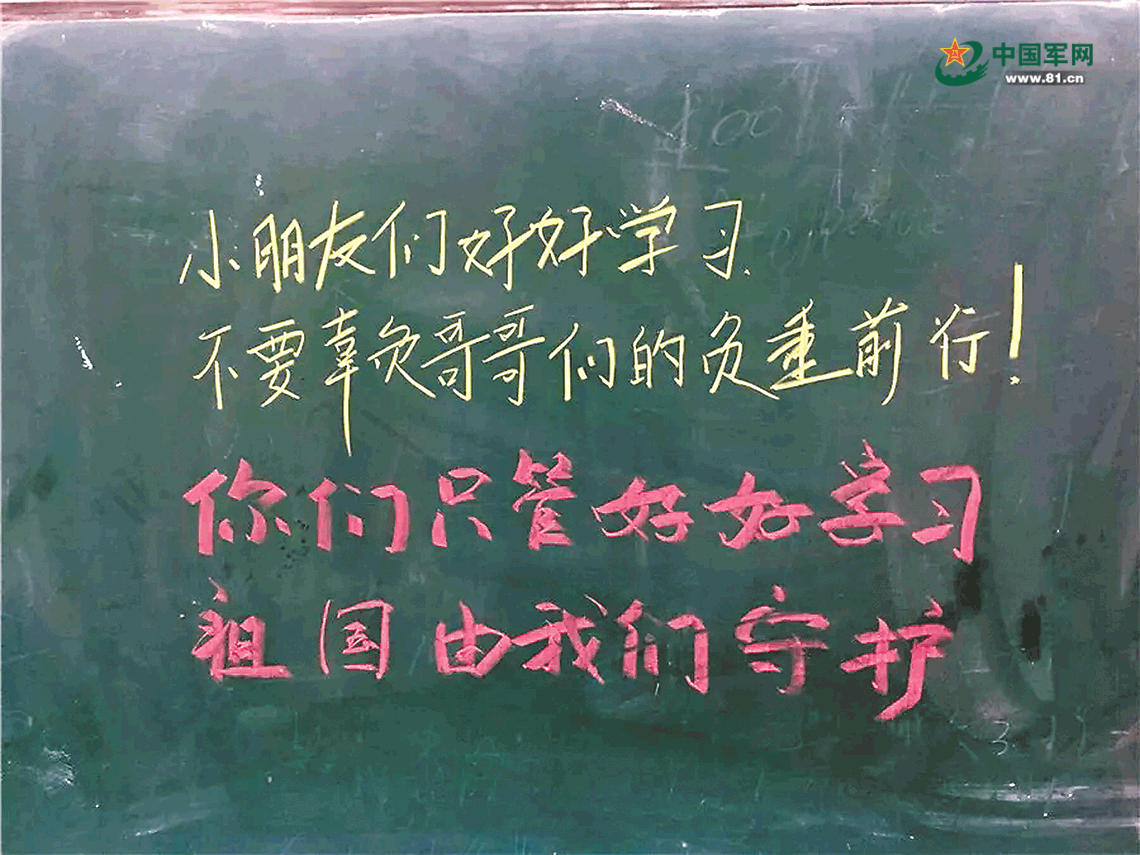 中国军网
www.81.cn
小朋友们好好学习
不要辜负哥哥们的负重前行！
你们只管好好学习
祖国由我们守护